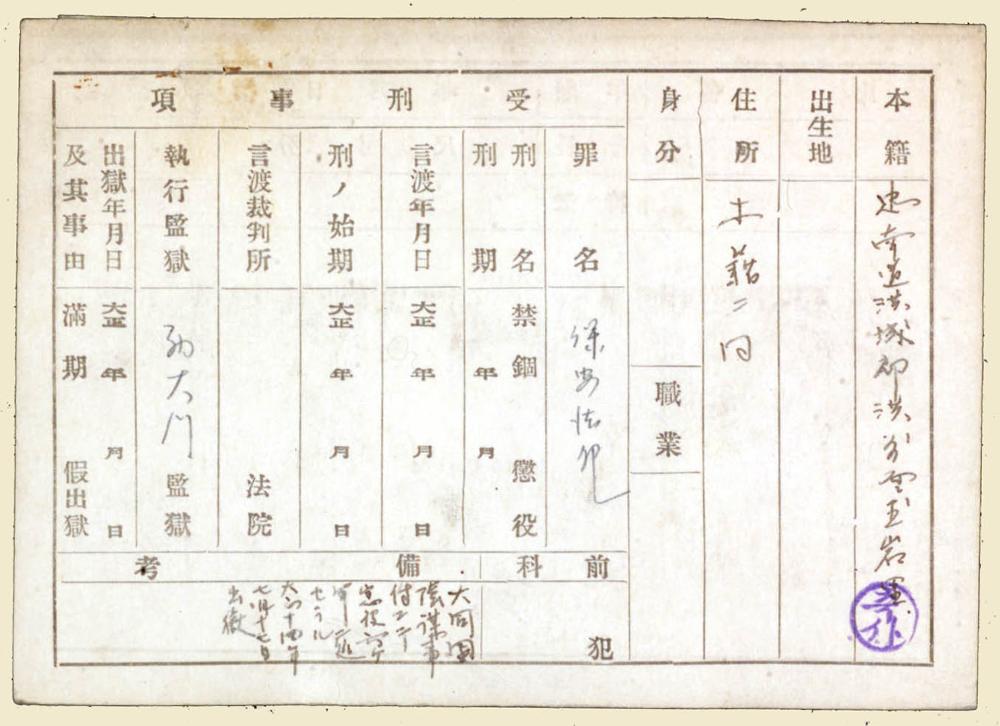 本籍
忠南道洪城郡洪州面玉岩里
出生地
住所
本籍ニ同
身分
職業
受刑事項
罪名
保安法犯
刑名
禁錮
懲役
刑期
年
月
言渡年月日
大正
年
月
日
刑ノ始期
大正
年
月
日
言渡裁判所
法院
執行監獄
西大門
監獄
出獄年月日
及其事由
大正
年
月
日
滿期
假出獄
前科
犯
備考
大同團
陰謀事
件ニテ
懲役
大正十四年
七月十七日
出獄